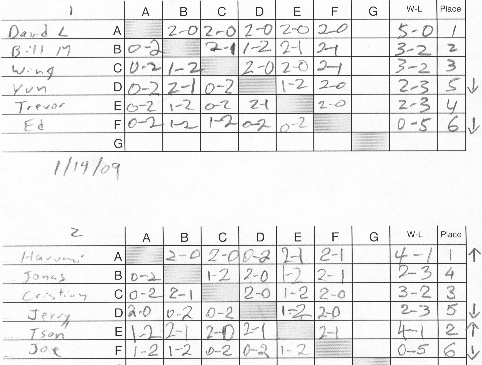 1 A B C D E F G W-L Place
David L A 2-0 2-0 2-0 2-0 2-0 5-0 1
Bill M B 0-2 2-1 1-2 2-1 2-1 3-2 2
Wing C 0-2 1-2 2-0 2-0 2-1 3-2 3
Yun D 0-2 2-1 0-2 1-2 2-0 2-3 5 ↓
Trevor E 0-2 1-2 0-2 2-1 2-0 2-3 4
Ed F 0-2 1-2 1-2 0-2 0-2 0-5 6 ↓
G
1/14/09
2 A B C D E F G W-L Place
A 2-0 2-0 0-2 2-1 2-1 4-1 1 ↑
Jonas B 0-2 1-2 2-0 1-2 2-1 2-3 4
Cristian C 0-2 2-1 2-0 1-2 2-0 3-2 3
Jerry D 2-0 0-2 0-2 1-2 2-0 2-3 5 ↓
E 1-2 2-1 2-0 2-1 2-1 4-1 2 ↑
Joe F 1-2 1-2 0-2 0-2 1-2 0-5 6 ↓